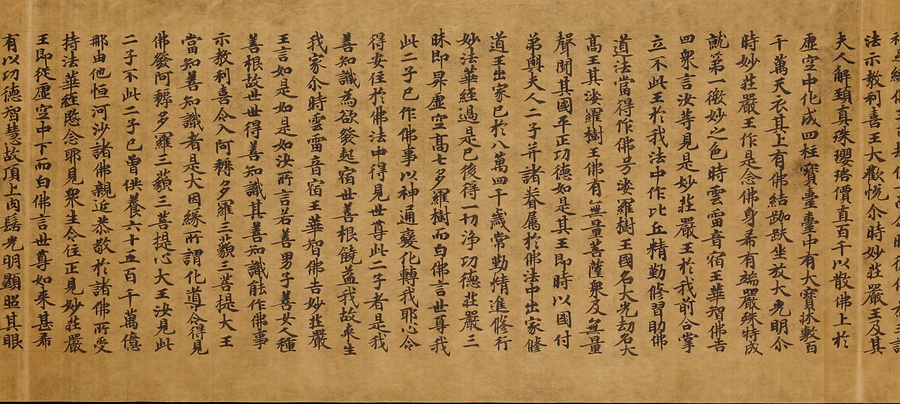 法示教利喜王大歡悅尒時妙莊嚴王及其
夫人解頚真珠瓔珞價直百千以散佛上於
虛空中化成四柱寶臺臺中有大寶牀敷百
千萬天衣其上有佛結跏趺坐放大光明尒
時妙莊嚴王作是念佛身希有端嚴殊特成
就第一微妙之色時雲雷音宿王華智佛告
四衆言汝等見是妙莊嚴王於我前合掌
立不此王於我法中作比丘精勤修習助佛
道法當得作佛号娑羅樹王國名大光劫名大
高王其娑羅樹王佛有無量菩薩衆及無量
聲聞其國平正功德如是其王即時以國付
弟與夫人二子并諸眷屬於佛法中出家修
道王出家已於八萬四千歲常勤精進修行
妙法華經過是已後得一切淨功德莊嚴三
昧即昇虛空高七多羅樹而白佛言世尊我
此二子已作佛事以神通變化轉我耶心令
得安住於佛法中得見世尊此二子者是我
善知識為欲發起宿世善根饒益我故来生
我家尒時雲雷音宿王華智佛告妙莊嚴
王言如是如是如汝所言若善男子善女人種
善根故世世得善知識其善知識能作佛事
示教利喜令入阿耨多羅三藐三菩提大王
當知善知識者是大因緣所謂化導令得見
佛發阿耨多羅三藐三菩提心大王汝見此
二子不此二子已曾供養六十五百千萬億
那由他恒河沙諸佛親近恭敬於諸佛所受
持法華經愍念耶見衆生令住正見妙莊嚴
王即從虛空中下而白佛言世尊如来甚希
有以功德智慧故頂上肉髻光明顯照其眼